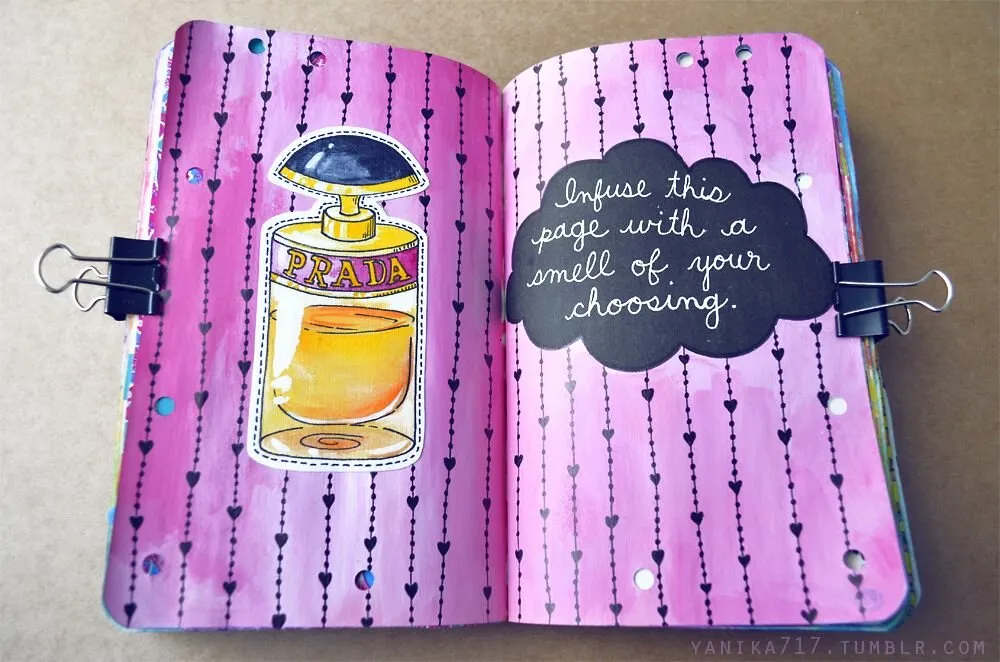 PRADA
Infuse this
page with a
smell of your
choosing.
YANIKA717.TUMBLR.COM